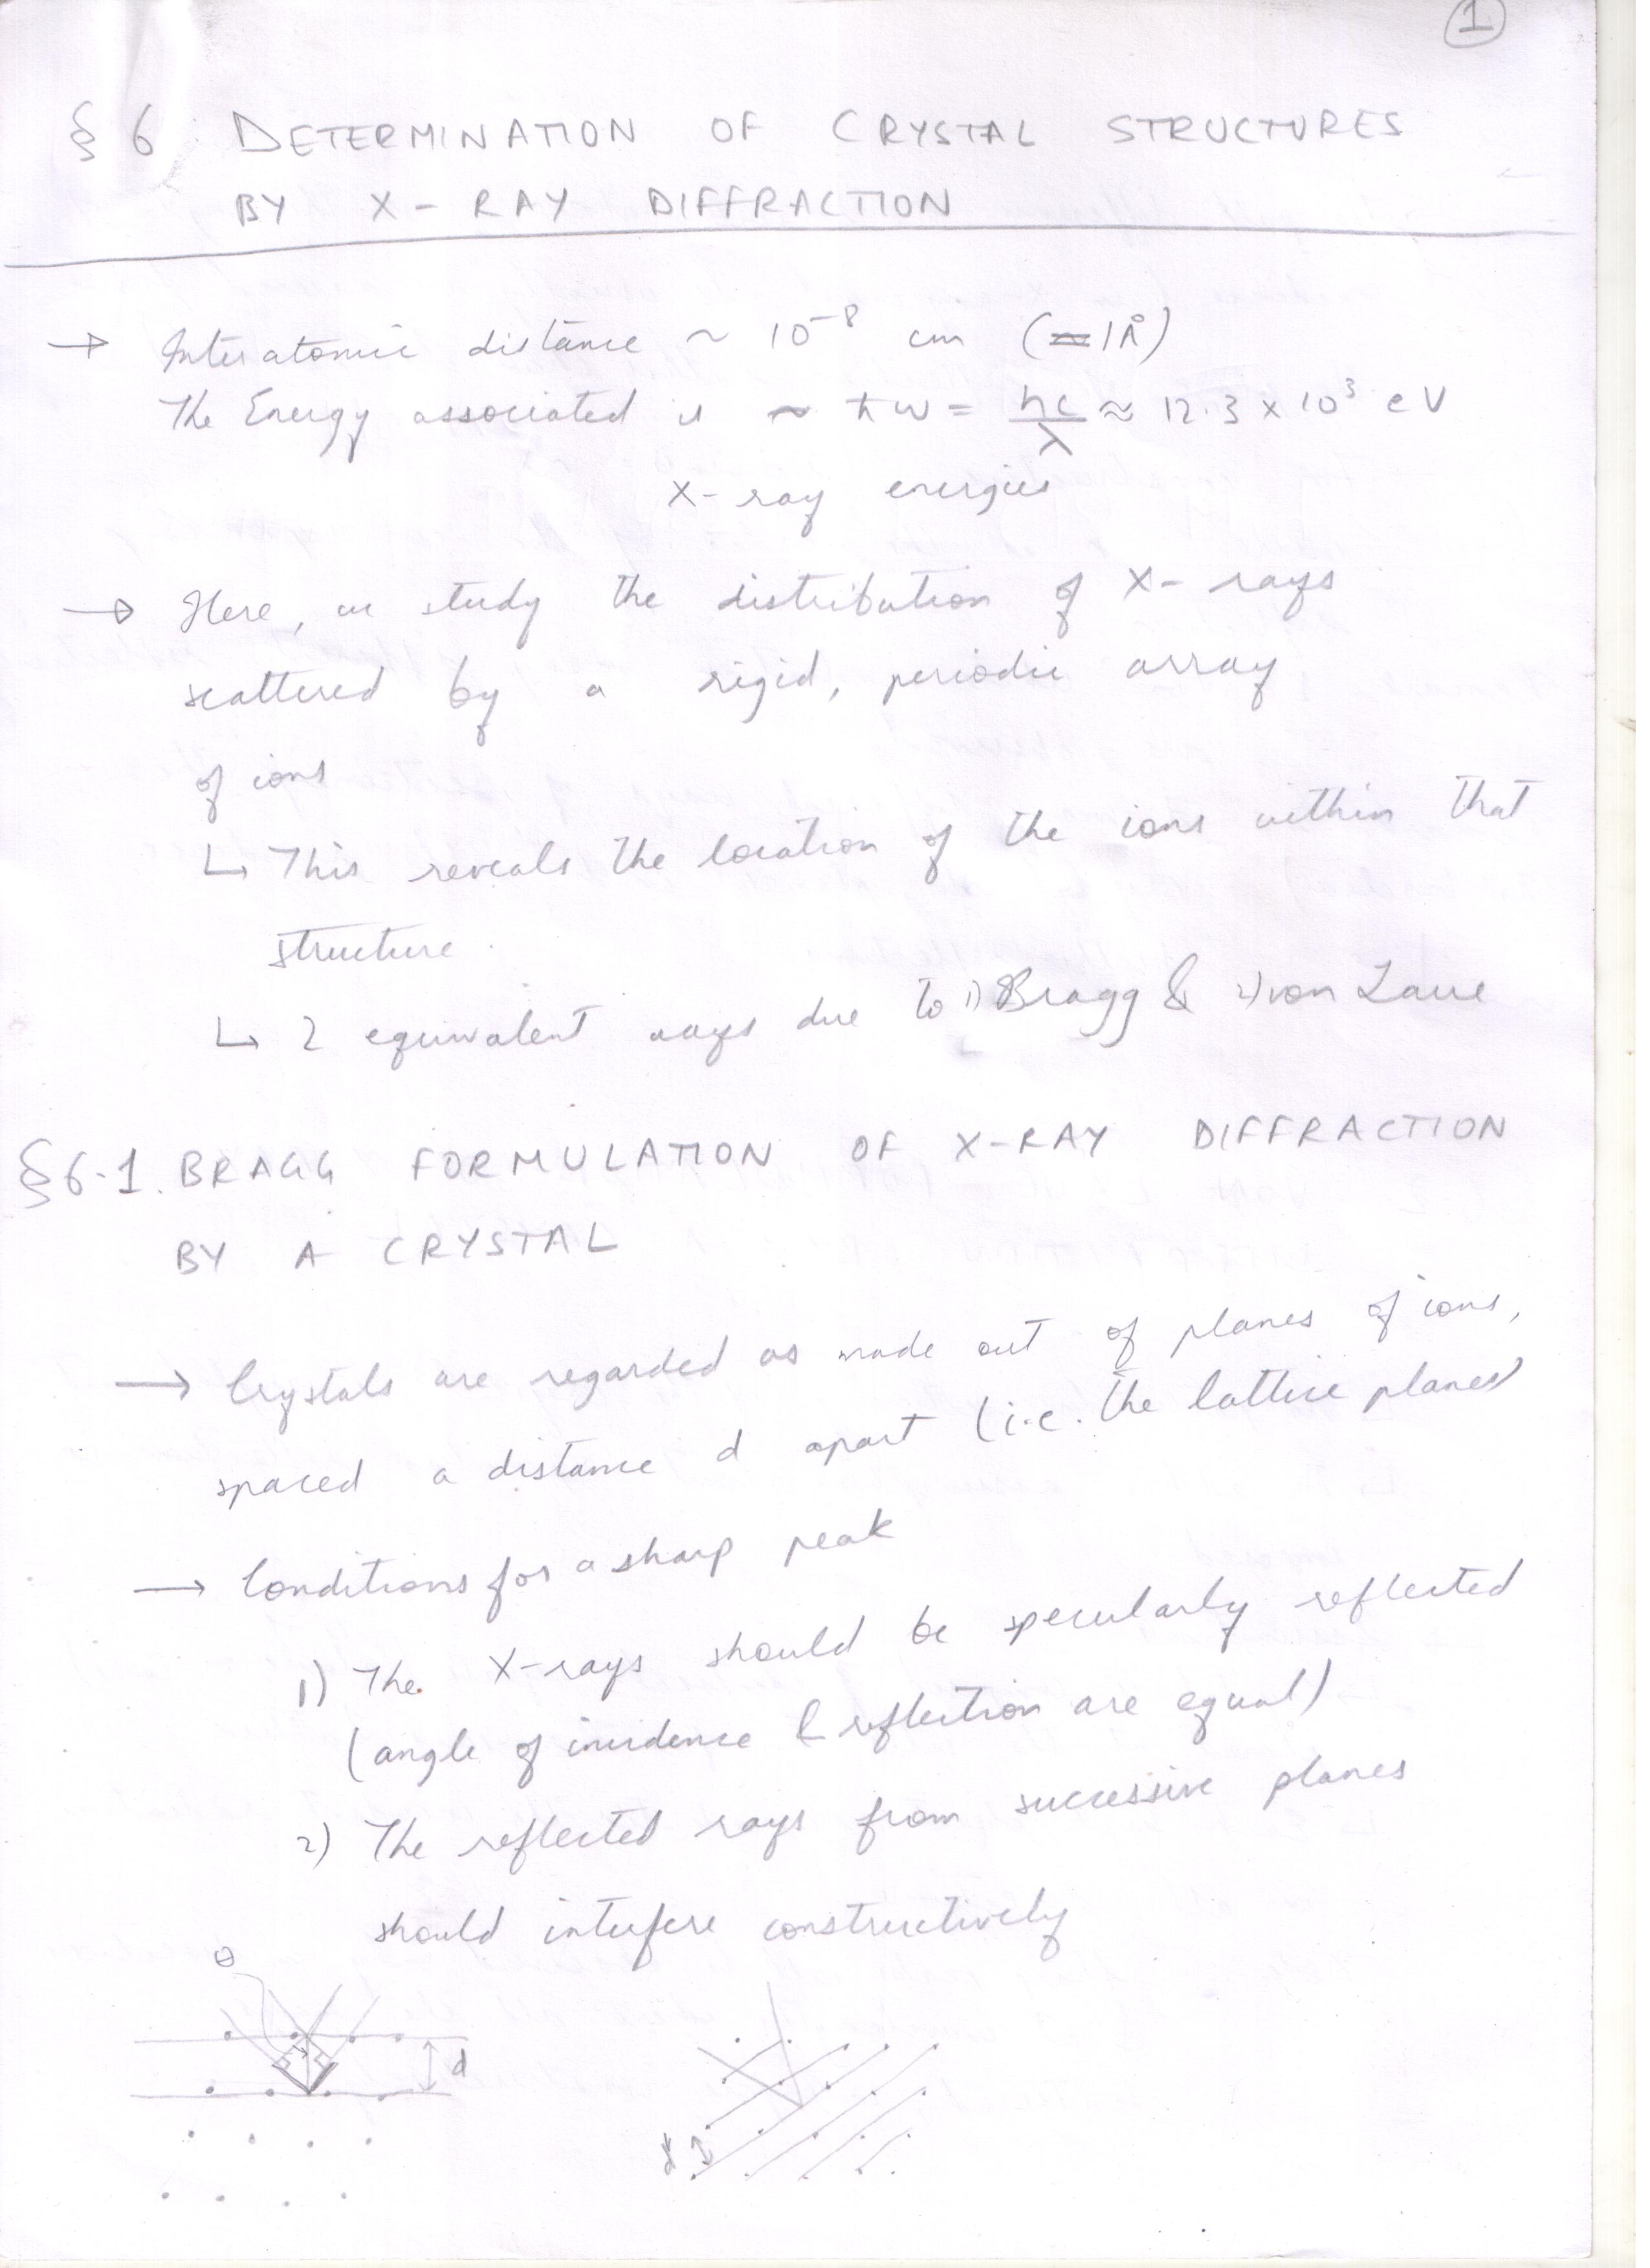 1
§ 6 DETERMINATION OF CRYSTAL STRUCTURES
BY X-RAY DIFFRACTION
→ Interatomic distance ~ 10⁻⁸ cm (=1Å)
The Energy associated is ~ ħω = hc/λ ≈ 12.3 × 10³ eV
X-ray energies
→ Here, we study the distribution of X-rays
scattered by a rigid, periodic array
of ions
↳ This reveals the location of the ions within that
structure.
↳ 2 equivalent ways due to 1) Bragg & 2) von Laue
§6-1. BRAGG FORMULATION OF X-RAY DIFFRACTION
BY A CRYSTAL
→ Crystals are regarded as made out of planes of ions,
spaced a distance d apart (i.e. the lattice planes)
→ Conditions for a sharp peak
1) The X-rays should be specularly reflected
(angle of incidence & reflection are equal)
2) The reflected rays from successive planes
should interfere constructively
θ
d